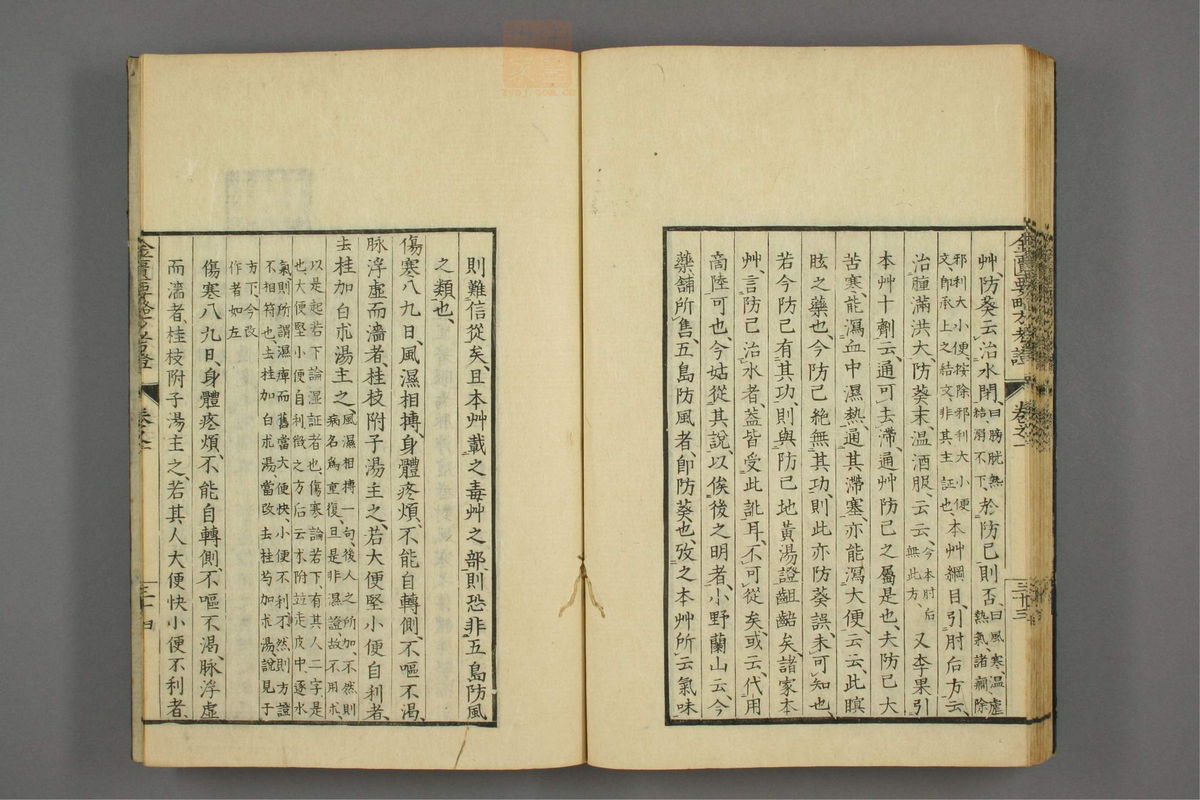 艸防葵云治水閉曰膀胱熱結溺不下於防己則否曰風寒温瘧熱氣諸癇除
邪利大小便按除邪利大小便文即承上之結文非其主証也本艸綱目引肘后方云
治腫滿洪大防葵末温酒服云云今本肘后無此方又李杲引
本艸十劑云通可去滯通艸防己之屬是也夫防己大
苦寒能瀉血中濕熱通其滯塞亦能瀉大便云云此瞑
眩之藥也今防己絶無其功則此亦防葵誤未可知也
若今防己有其功則與防己地黃湯證齟齬矣諸家本
艸言防己治水者蓋皆受此訛耳不可從矣或云代用
商陸可也今姑從其說以俟後之明者小野蘭山云今
藥舖所售五島防風者即防葵也攷之本艸所云氣味
則難信從矣且本艸載之毒艸之部則恐非五島防風
之類也
傷寒八九日風濕相摶身體疼煩不能自轉側不嘔不渴
脉浮虛而濇者桂枝附子湯主之若大便堅小便自利者
去桂加白朮湯主之風濕相摶一句後人之所加不然則病名為重復且是非濕證故不用朮
以是起若下論湿証者也傷寒論若下有其人二字是也大便堅小便自利徴之方后云朮附竝走皮中逐水
氣則所謂濕痺而舊當大便快小便不利不然則方證不相符也去桂加白朮湯當改去桂芍加朮湯說見于
方下今改作者如左
傷寒八九日身體疼煩不能自轉側不嘔不渴脉浮虛
而濇者桂枝附子湯主之若其人大便快小便不利者
金匱要略方考證
卷之一
三十三
卷之一
三十四